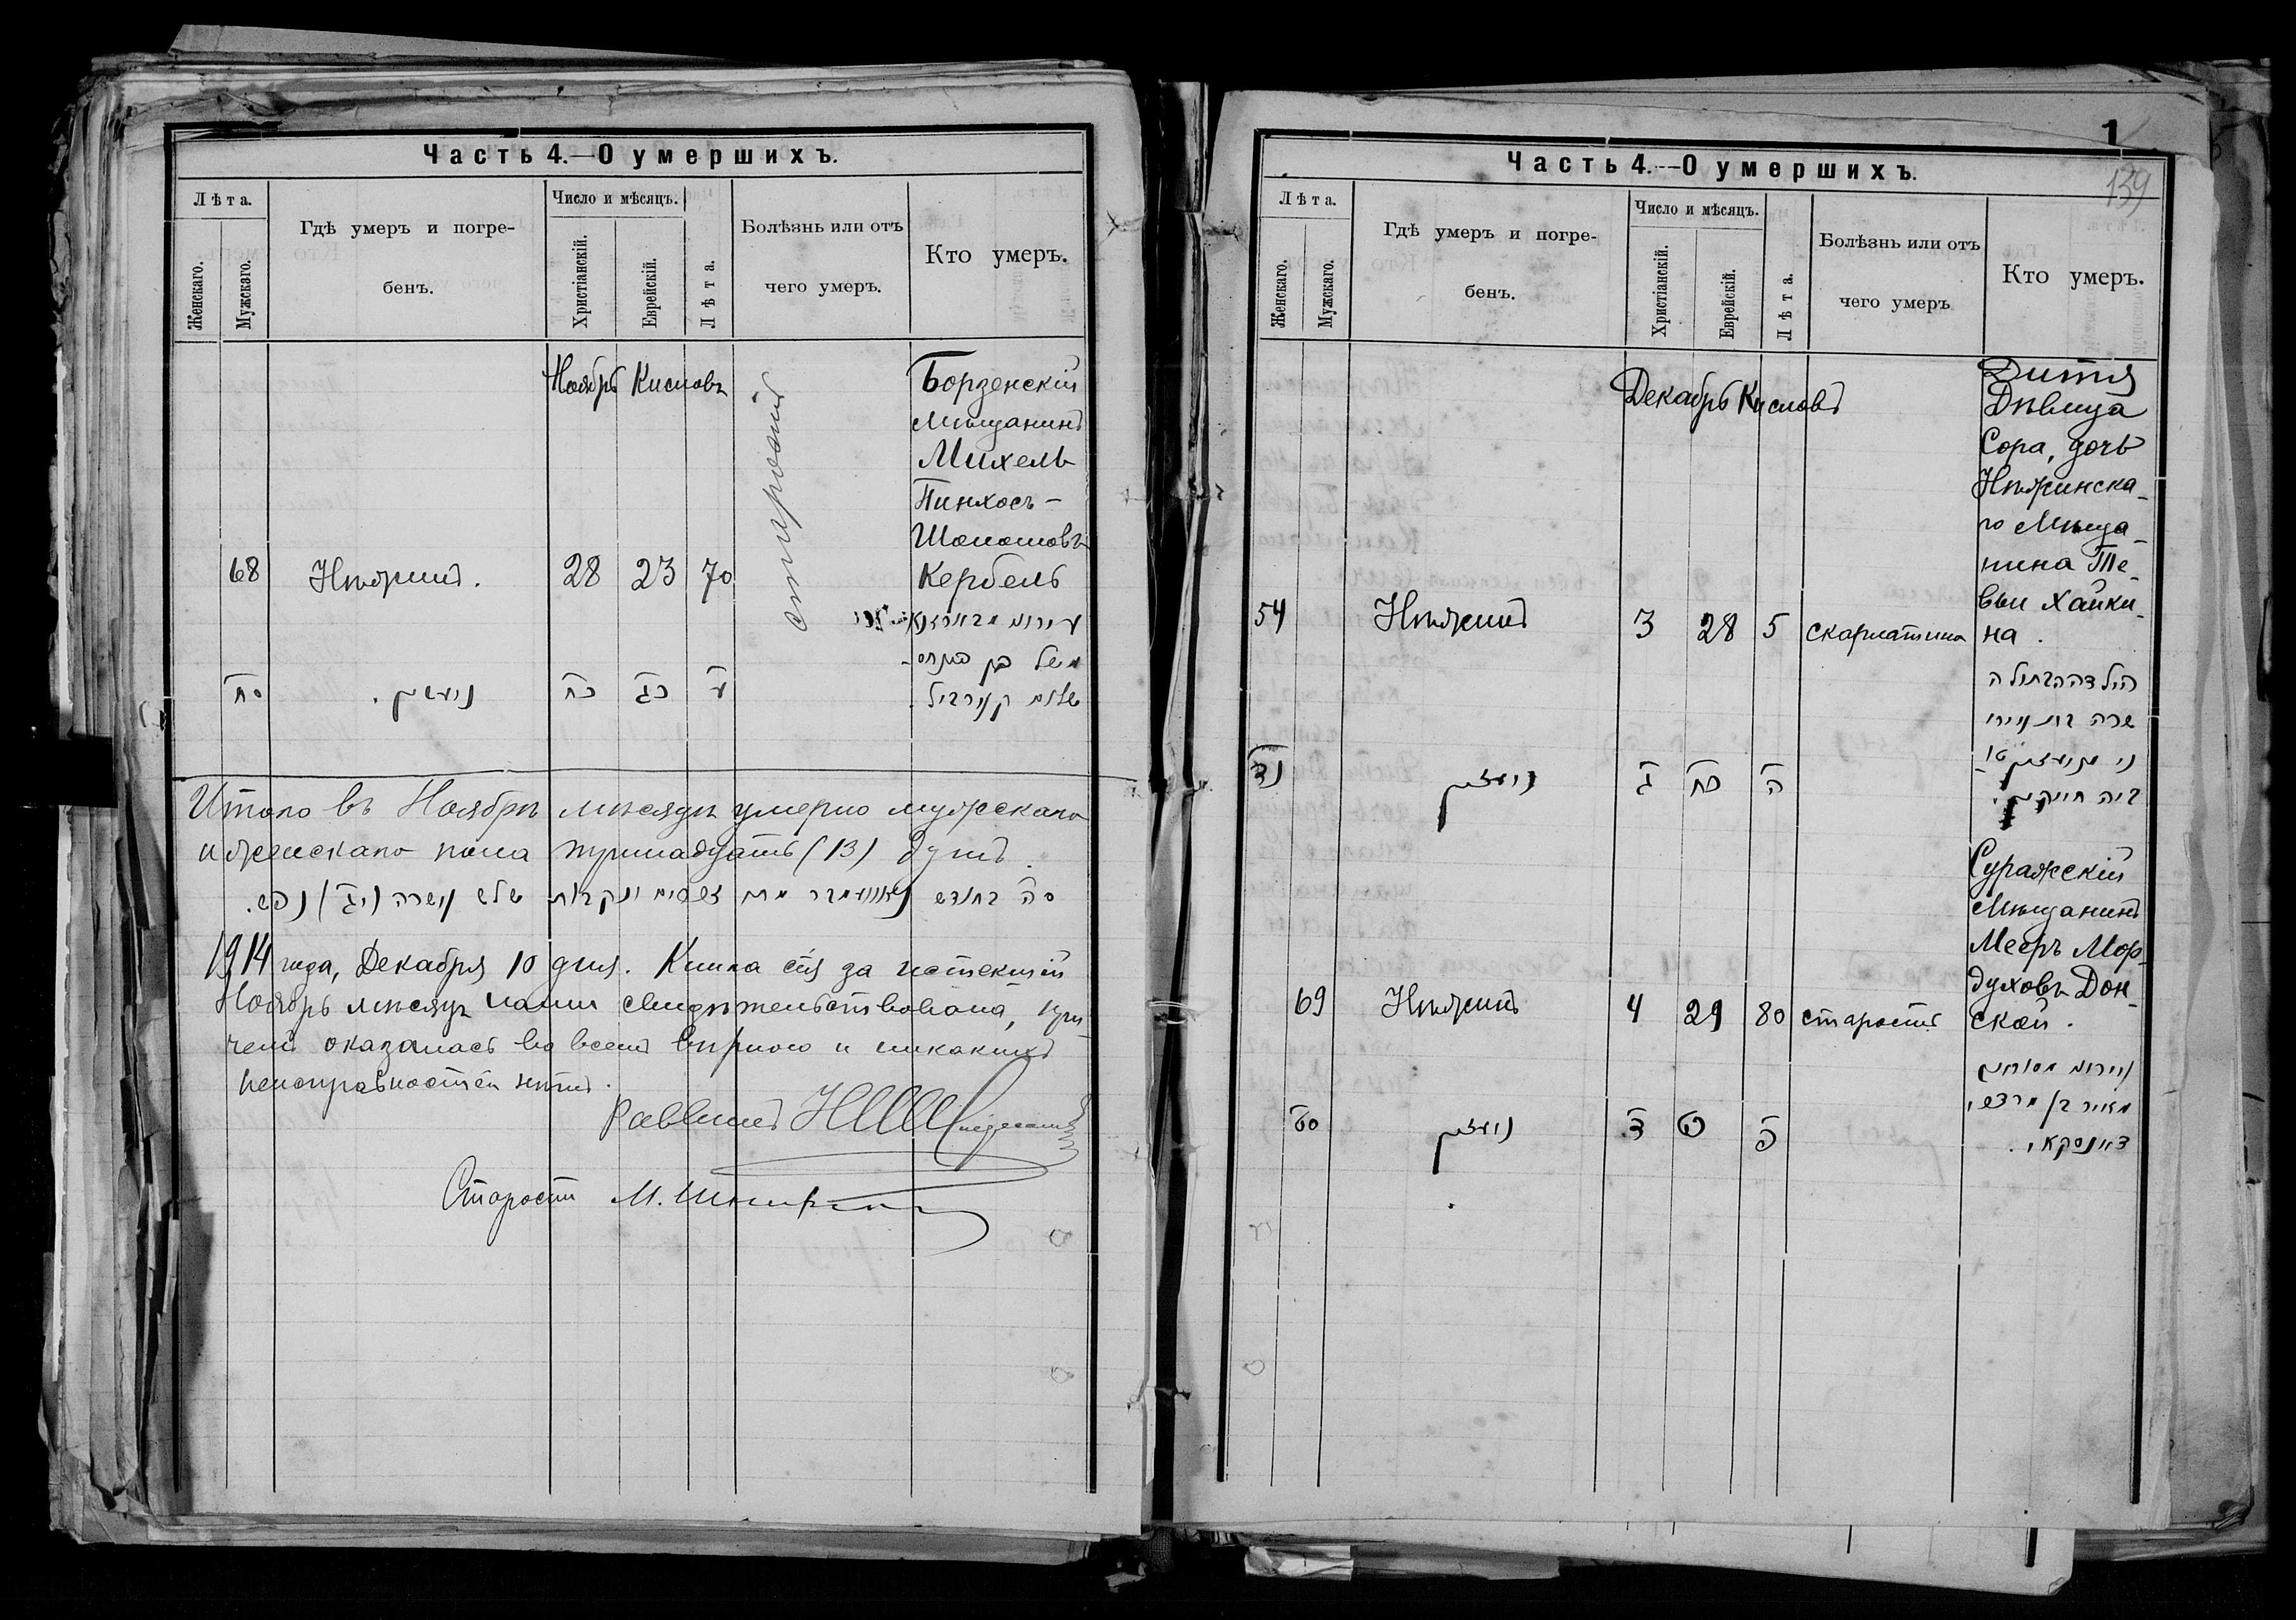 Часть 4.—О умершихъ.
Лѣта.
Женскаго.
Мужскаго.
Гдѣ умеръ и погре-
бенъ.
Число и мѣсяцъ.
Христіанскій.
Еврейскій.
Лѣта.
Болѣзнь или отъ
чего умеръ.
Кто умеръ.
Ноябрь Кисловъ
Борзенскій
Мѣщанинъ
Михель
Пинхосъ-
Шоломовъ
68 Нѣжинъ. 28 23 70 старость Кербель
סח נעזין. כח כג ע
Итого въ Ноябрѣ мѣсяцѣ умерло мужскаго
и женскаго пола тринадцать (13) душъ.
1914 года, Декабря 10 дня. Книга сія за истекшій
Ноябрь мѣсяцъ нами свидѣтельствована, при
чемъ оказалась во всемъ вѣрною и никакихъ
неисправностей нѣтъ.
Раввинъ
Староста М.
1
139
Часть 4.—О умершихъ.
Лѣта.
Женскаго.
Мужскаго.
Гдѣ умеръ и погре-
бенъ.
Число и мѣсяцъ.
Христіанскій.
Еврейскій.
Лѣта.
Болѣзнь или отъ
чего умеръ
Кто умеръ.
Декабрь Кисловъ
Дитя
Дѣвица
Сора, дочь
Нѣжинска-
го Мѣща-
нина Те-
вьи Хайки-
54 Нѣжинъ 3 28 5 скарлатина на.
הילדה הבתולה
נד נעזין ג כח ה
טביה חייקין.
Суражскій
Мѣщанинъ
Мееръ Мор-
духовъ Дон-
69 Нѣжинъ 4 29 80 старость ской.
מאיר בן מרדכי
סט נעזין ד כט פ
דאנסקאי.